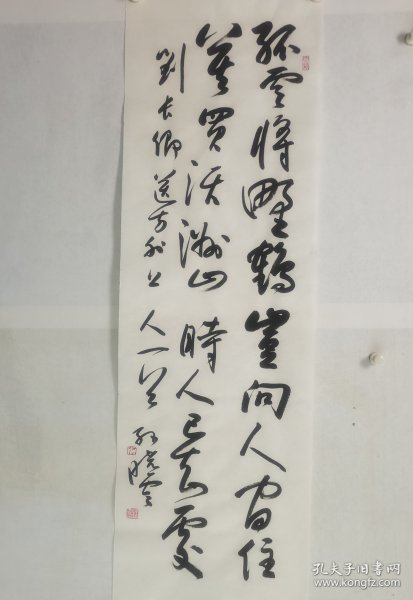 孤雲將野鶴豈向人間住
莫買沃洲山時人已知處
劉長卿送方外上
人一首孫曉雲
孔夫子旧书网
www.kongfz.com